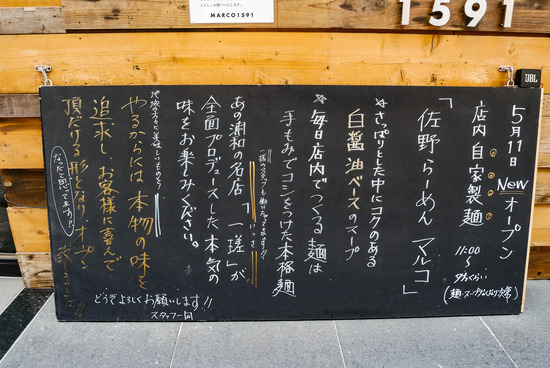 よろしくお願いいたします。
MARCO1591
1591
JBL
5月11日 New オープン
店内自家製麺
11:00
〜
夕方くらい
(麺・スープなくなり次第)
「佐野らーめん マルコ」
*さっぱりとした中にコクのある
白醤油ベースのスープ
*毎日店内でつくる麺は
手もみでコシをつけた本格麺
一瑳のスタッフも働いてますよ!!
あの浦和の名店「一瑳」が
いっさ
全面プロデュースした本気の
味をお楽しみください。
やるからには本物の味を
追求し、お客様に喜んで
頂だける形となりオープン
致しました!!
なったと思ってますが
どうぞよろしくお願いします!!
スタッフ一同